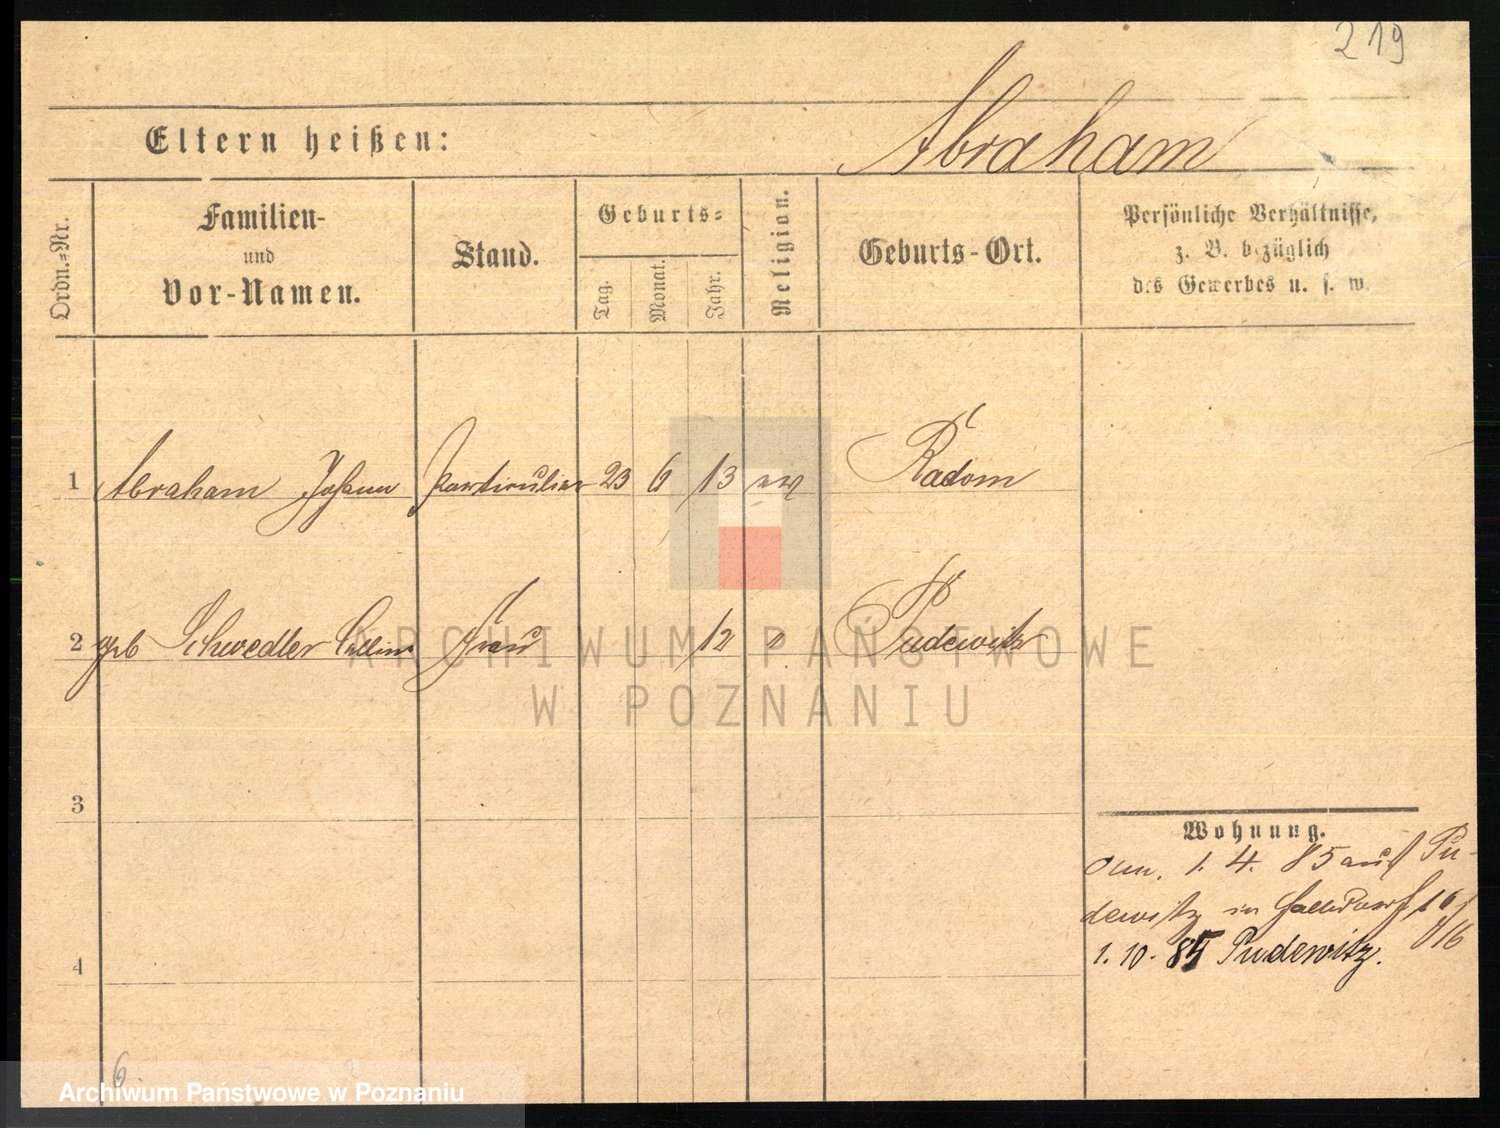 219
Eltern heißen: Abraham
Ordn.-Nr.
Familien-
und
Vor-Namen.
Stand.
Geburts-
Tag.
Monat.
Jahr.
Religion.
Geburts-Ort.
Persönliche Verhältnisse,
z. B. bezüglich
des Gewerbes u. s. w.
1 Abraham Johann Particulier 23 6 13 ev Radom
2 geb Schwedler Frau 12 Pudewitz
3
Wohnung.
1. 4. 85 aus Pu-
dewitz in
1. 10. 85 Pudewitz.
4
6
ARCHIWUM PAŃSTWOWE
W POZNANIU
Archiwum Państwowe w Poznaniu